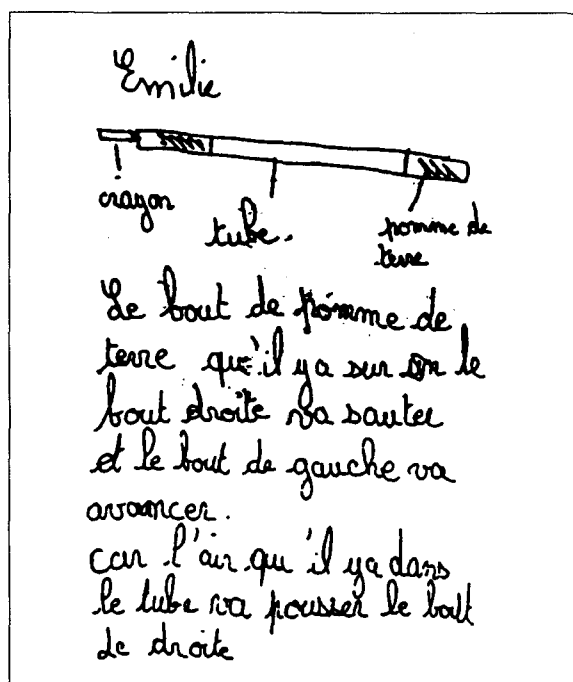 Emilie
crayon
tube.
pomme de
terre
Le bout de pomme de
terre qu'il ya sur le
bout droite va sauter
et le bout de gauche va
avancer.
car l'air qu'il ya dans
le tube va pousser le bout
de droite